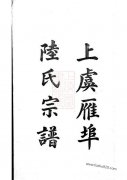 上虞雁埠
陸氏宗譜